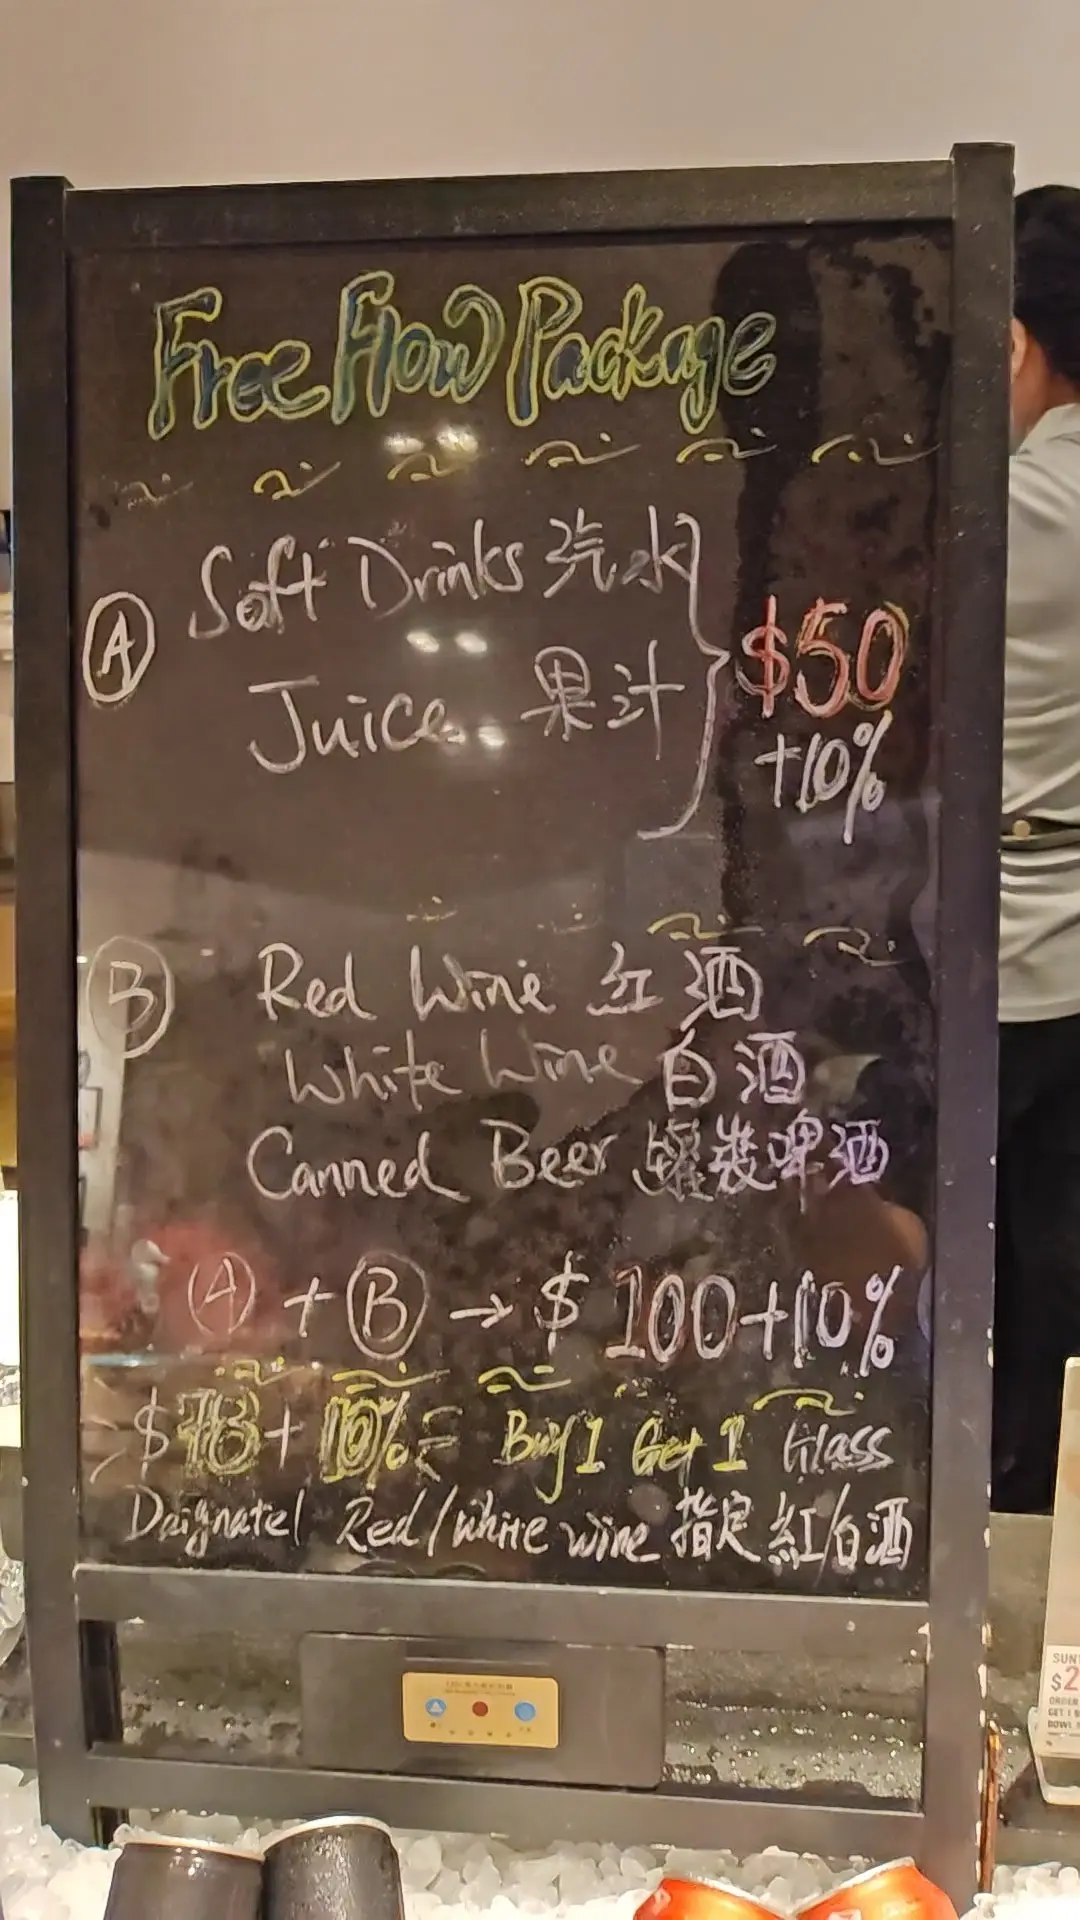 Free Flow Package
Ⓐ Soft Drinks 汽水
Juice 果汁
$50
+10%
Ⓑ Red Wine 紅酒
White Wine 白酒
Canned Beer 罐裝啤酒
Ⓐ + Ⓑ → $ 100+10%
$78+10% Buy 1 Get 1 Glass
Daignatel Red/White wine 指定紅/白酒
SUN
$2
ORDER
GET 1
BOWL